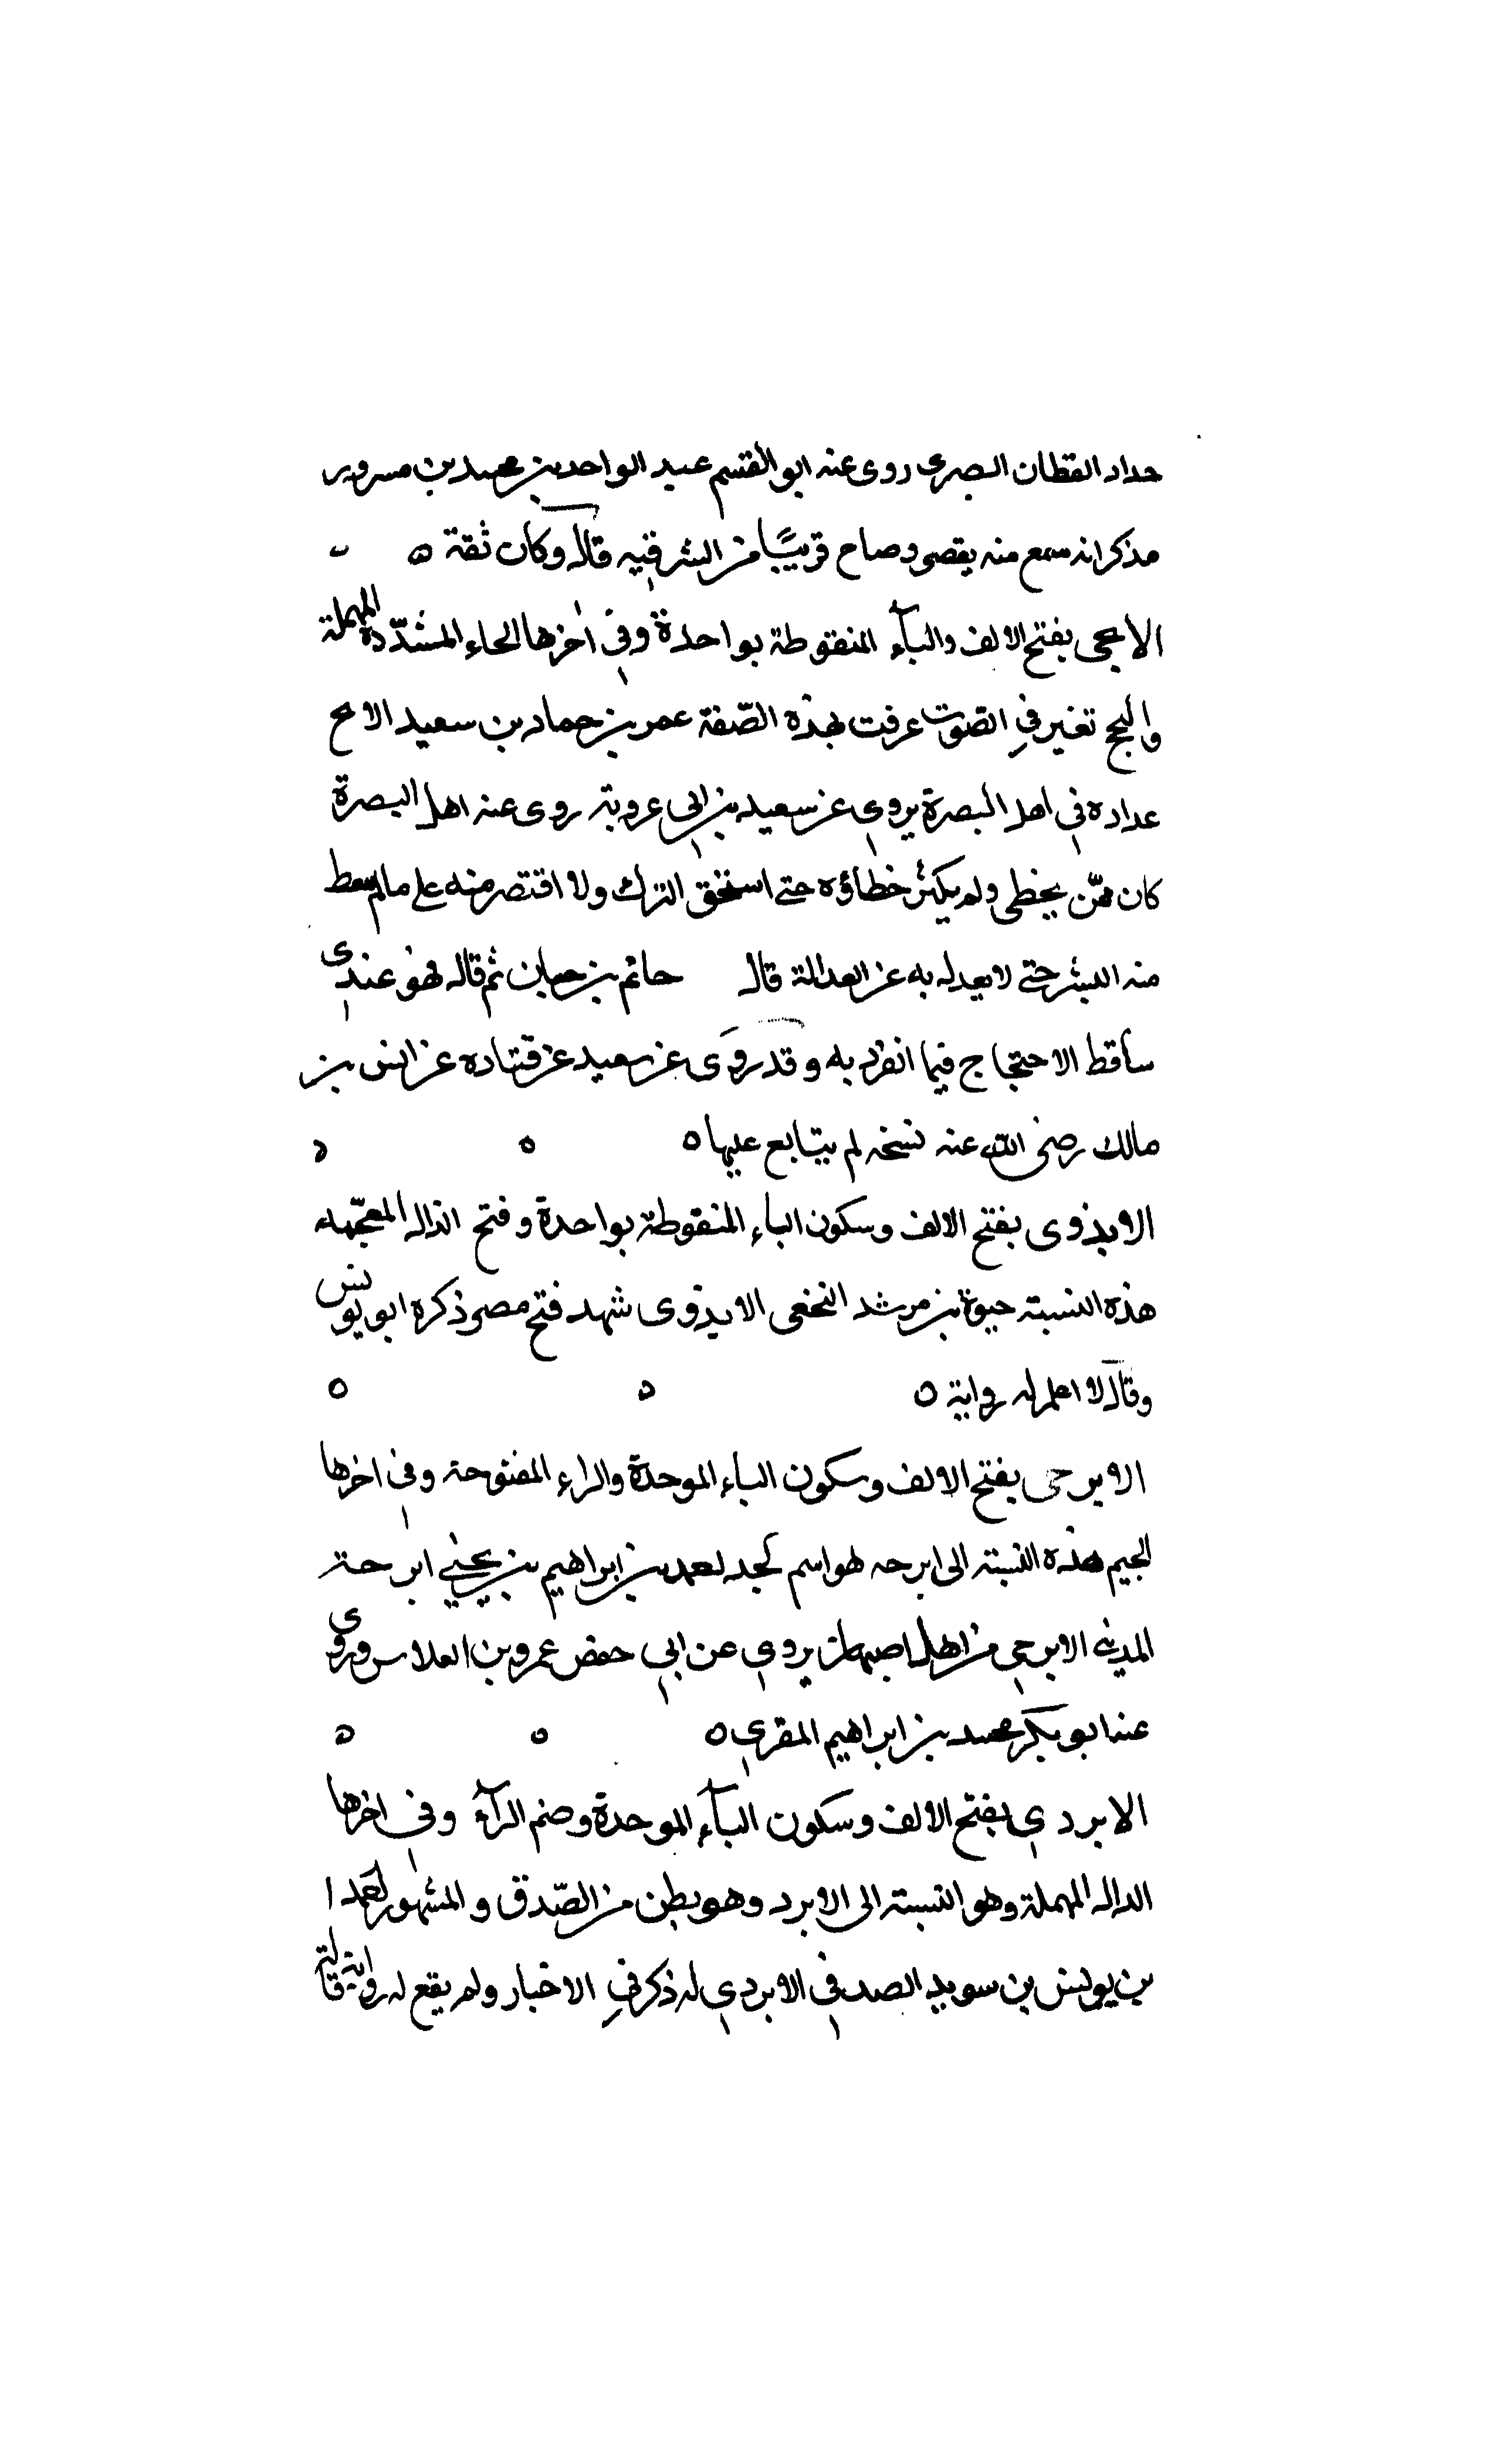 حداد القطان البصري روى عنه ابو القسم عبد الواحد بن محمد بن مسرور
مذكر انه سمع منه بقصر وصاح قريبًا من الشرقيه قال وكان ثقة ه
الابحى بفتح الالف والبآء المنقوطة بواحدة وفي اخرها الحاء المشدّدة المهملة
والبحح تغير في الصّوت عرفت بهذه الصّفة عمر بن حماد بن سعيد الابح
عداده في اهل البصرة يروي عن سعيد بن ابي عروبة روى عنه اهل البصرة
كان ممّن يخطى ولم يكثر خطاؤه حتى استحق الترك ولا اقتصر منه على مالم
منه البشر حتى لا يعدل به عن العدالة قال حاتم بن حبان ثم قال فهو عندى
ساقط الاحتجاج فيما انفرد به وقد روى عن سعيد عن قتاده عن انس بن
مالك رضى الله عنه نسخه لم يتابع عليها ه ه ه
الابذوى بفتح الالف وسكون الباء المنقوطة بواحدة وفتح الذال المعجمه
هذه النسبة حيوة بن مرشد النخعى الابذوى شهد فتح مصر ذكره ابو يونس
وقال لا اعلم له رواية ه ه ه
الابرجى بفتح الالف وسكون الباء الموحدة والراء المفتوحة وفى اخرها
الجيم هذه النسبة الى ابرجه هو اسم لجد لمحمد بن ابراهيم بن يحيى ابرجة
المدينى الابرجي من اهل اصبهان يروي عن ابي حفص عمرو بن الفلاس وروى
عنه ابو بكر محمد بن ابراهيم المقري ه ه ه
الابردي بفتح الالف وسكون البآء الموحدة وضم الرآء وفي اخرها
الدال المهملة وهو النسبة الى الابرد وهو بطن من الصّدق والمشهور
بن يونس بن سويد الصدفي الابردي له ذكر في الاخبار ولم يقع له رواية قاله